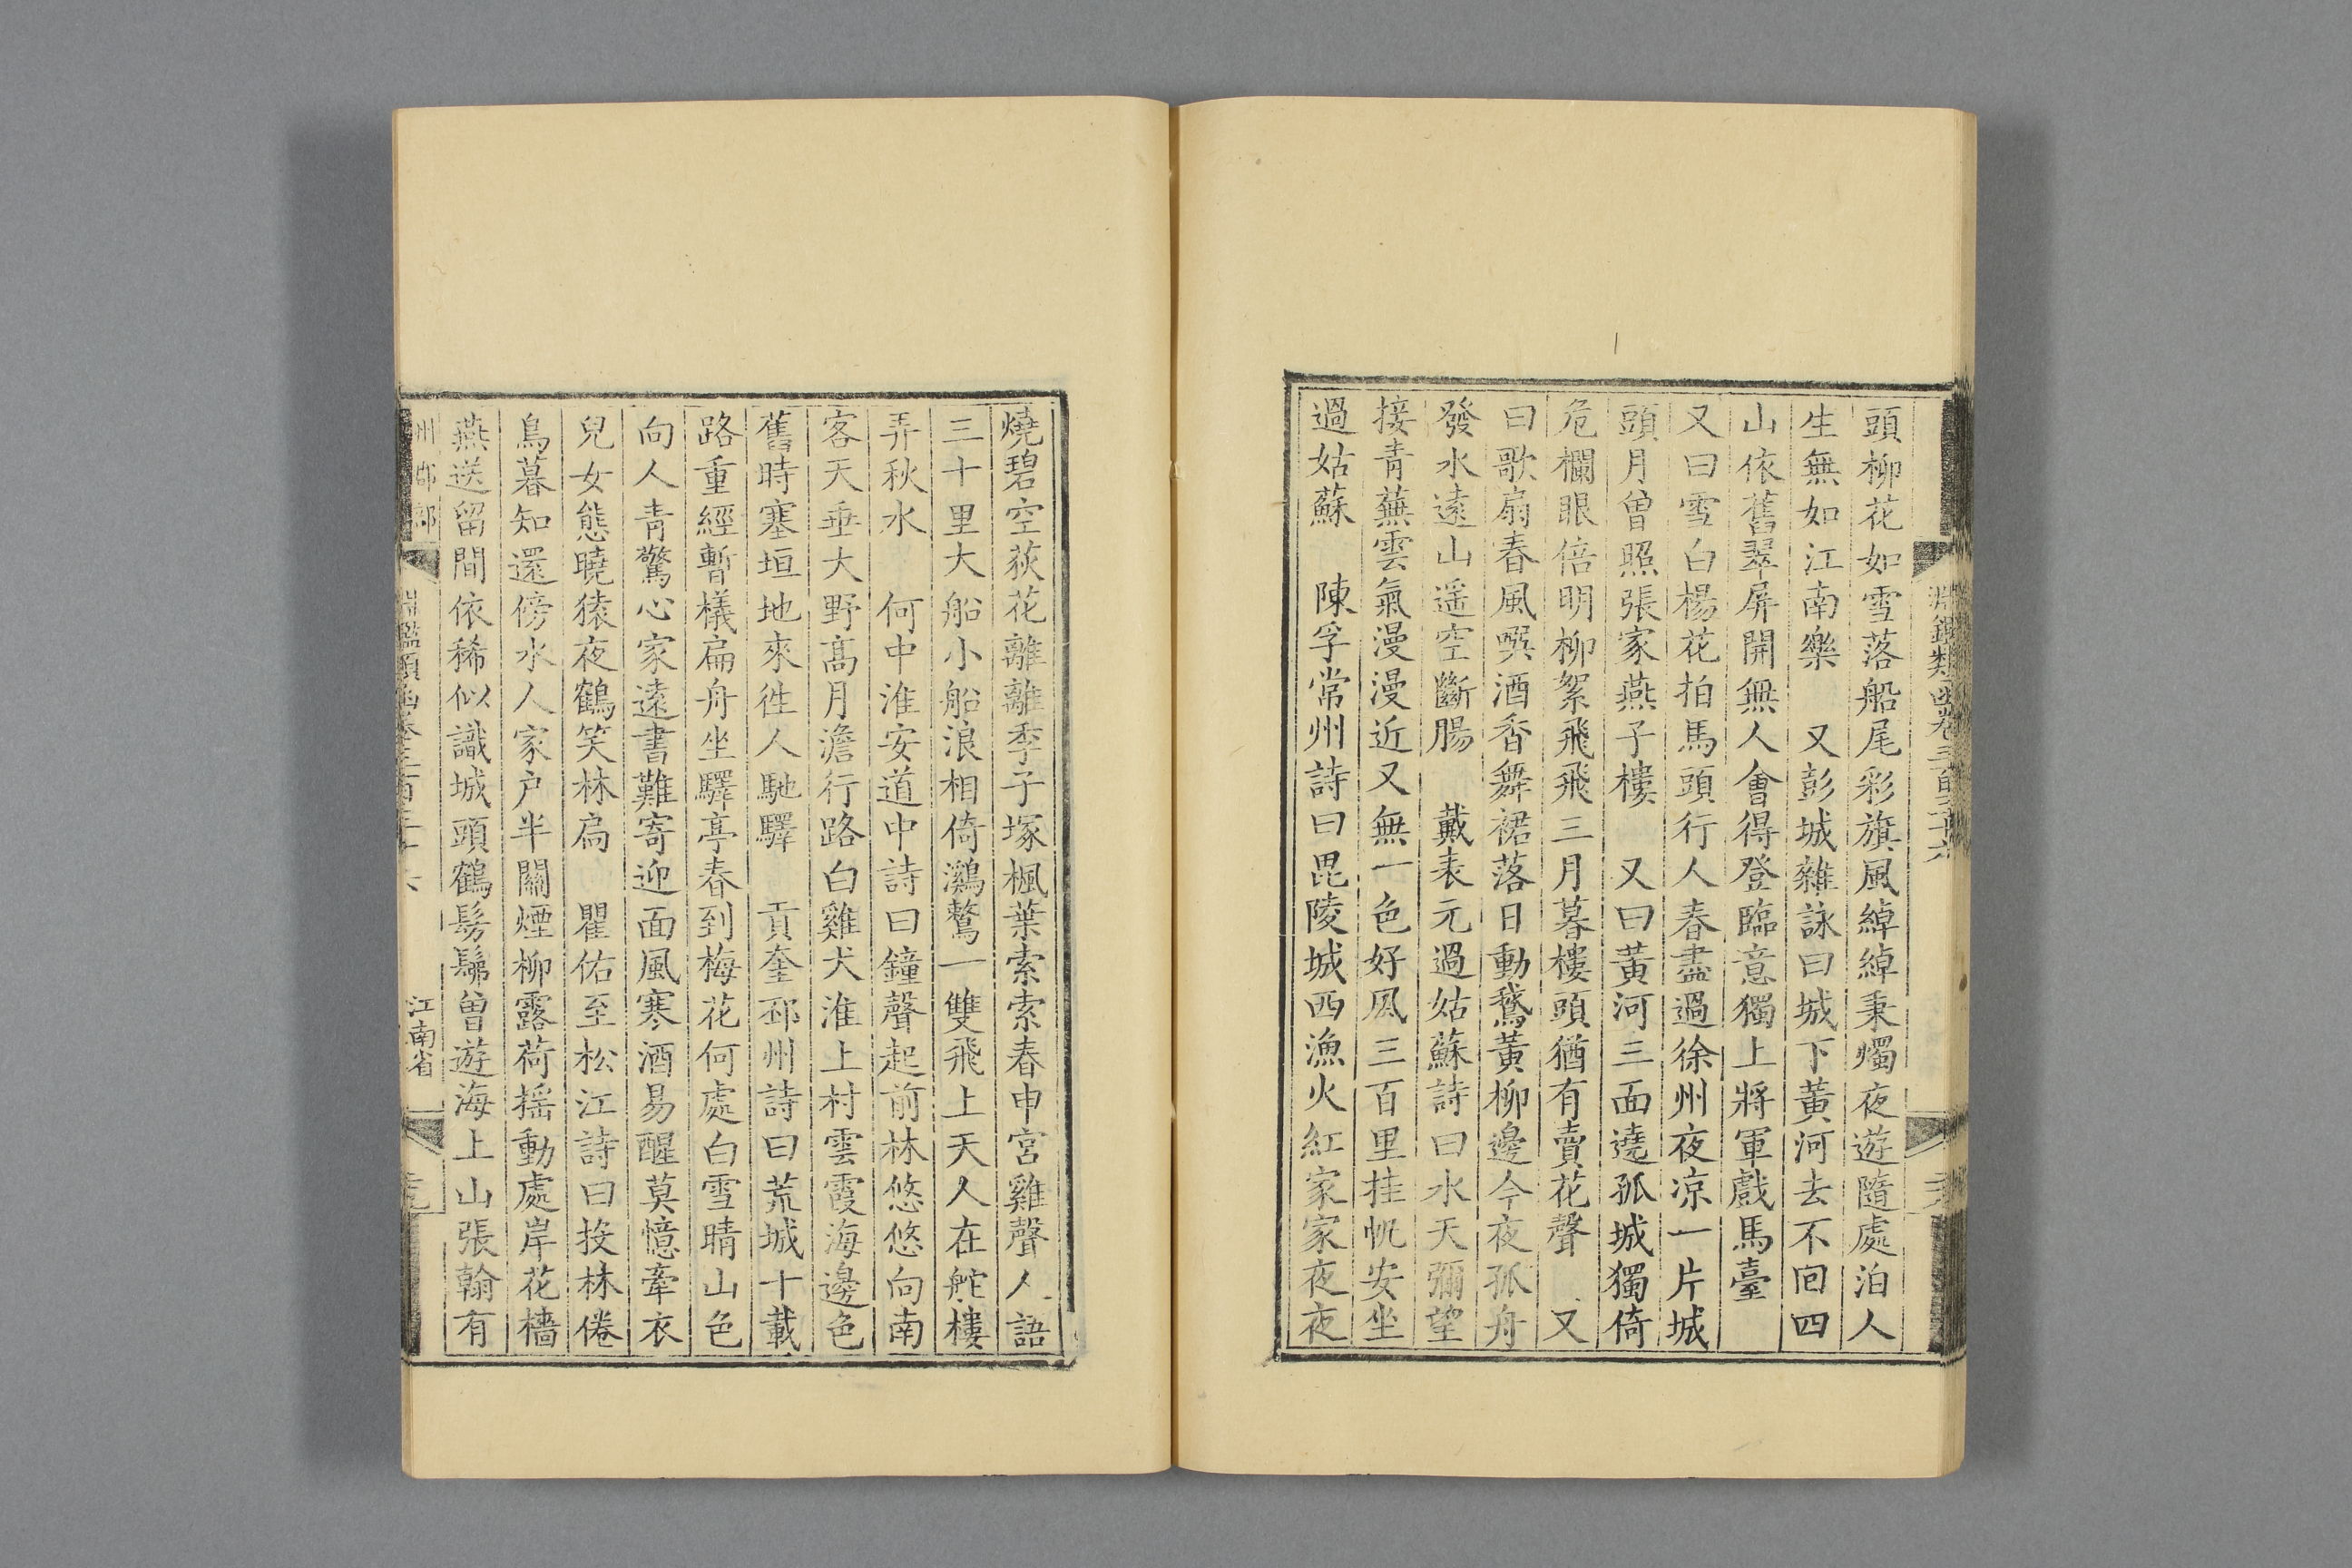 頭柳花如雪落船尾彩旗風綽綽秉燭夜遊隨處泊人
生無如江南樂　又彭城雜詠曰城下黃河去不回四
山依舊翠屏開無人會得登臨意獨上將軍戲馬臺
又曰雪白楊花拍馬頭行人春盡過徐州夜凉一片城
頭月曾照張家燕子樓　又曰黃河三面遶孤城獨倚
危欄眼倍明柳絮飛飛三月暮樓頭猶有賣花聲　又
曰歌扇春風喚酒香舞裙落日動鵞黃柳邊今夜孤舟
發水遠山遥空斷腸　戴表元過姑蘇詩曰水天彌望
接青蕪雲氣漫漫近又無一色好風三百里挂帆安坐
過姑蘇　陳孚常州詩曰毘陵城西漁火紅家家夜夜
燒碧空荻花離離季子塚楓葉索索春申宮雞聲人語
三十里大船小船浪相倚鸂鶩一雙飛上天人在舵樓
弄秋水　何中淮安道中詩曰鐘聲起前林悠悠向南
客天垂大野高月澹行路白雞犬淮上村雲霞海邊色
舊時塞垣地來徃人馳驛　貢奎邳州詩曰荒城十載
路重經暫檥扁舟坐驛亭春到梅花何處白雪晴山色
向人青驚心家遠書難寄迎面風寒酒易醒莫憶牽衣
兒女態曉猿夜鶴笑林扃　瞿佑至松江詩曰投林倦
鳥暮知還傍水人家户半關煙柳露荷摇動處岸花檣
燕送留間依稀似識城頭鶴髣髴曾遊海上山張翰有
江南省